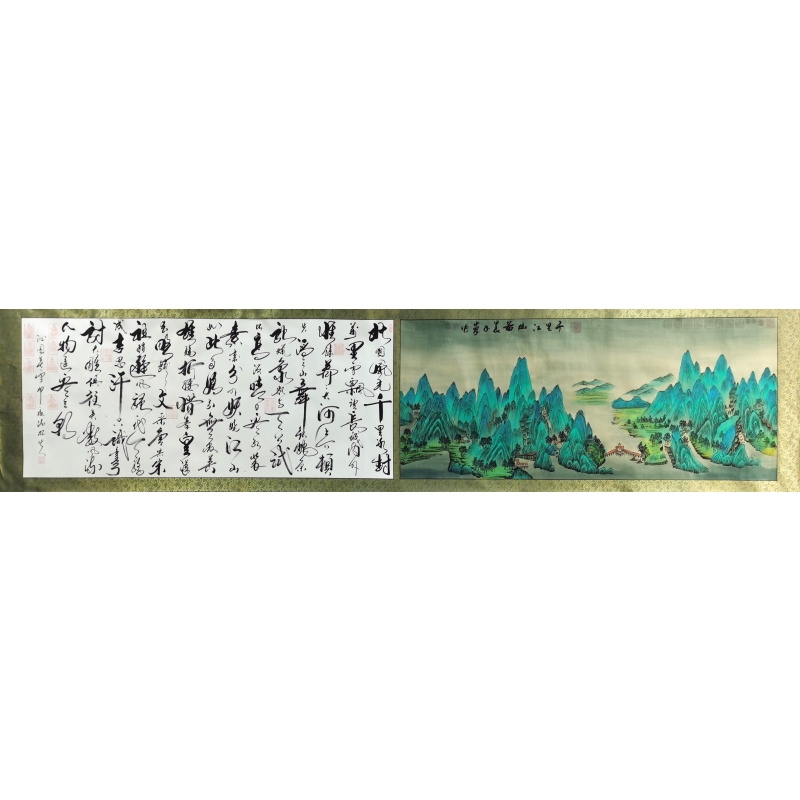 千里江山图
北国风光千里冰封
万里雪飘望长城内外
惟余莽莽大河上下顿
失滔滔山舞银蛇原
驰蜡象欲与天公试
比高须晴日看红装
素裹分外妖娆江山
如此多娇引无数英
雄竞折腰惜秦皇汉
武略输文采唐宗宋
祖稍逊风骚一代天骄
成吉思汗只识弯弓
射大雕俱往矣数风流
人物还看今朝
沁园春雪